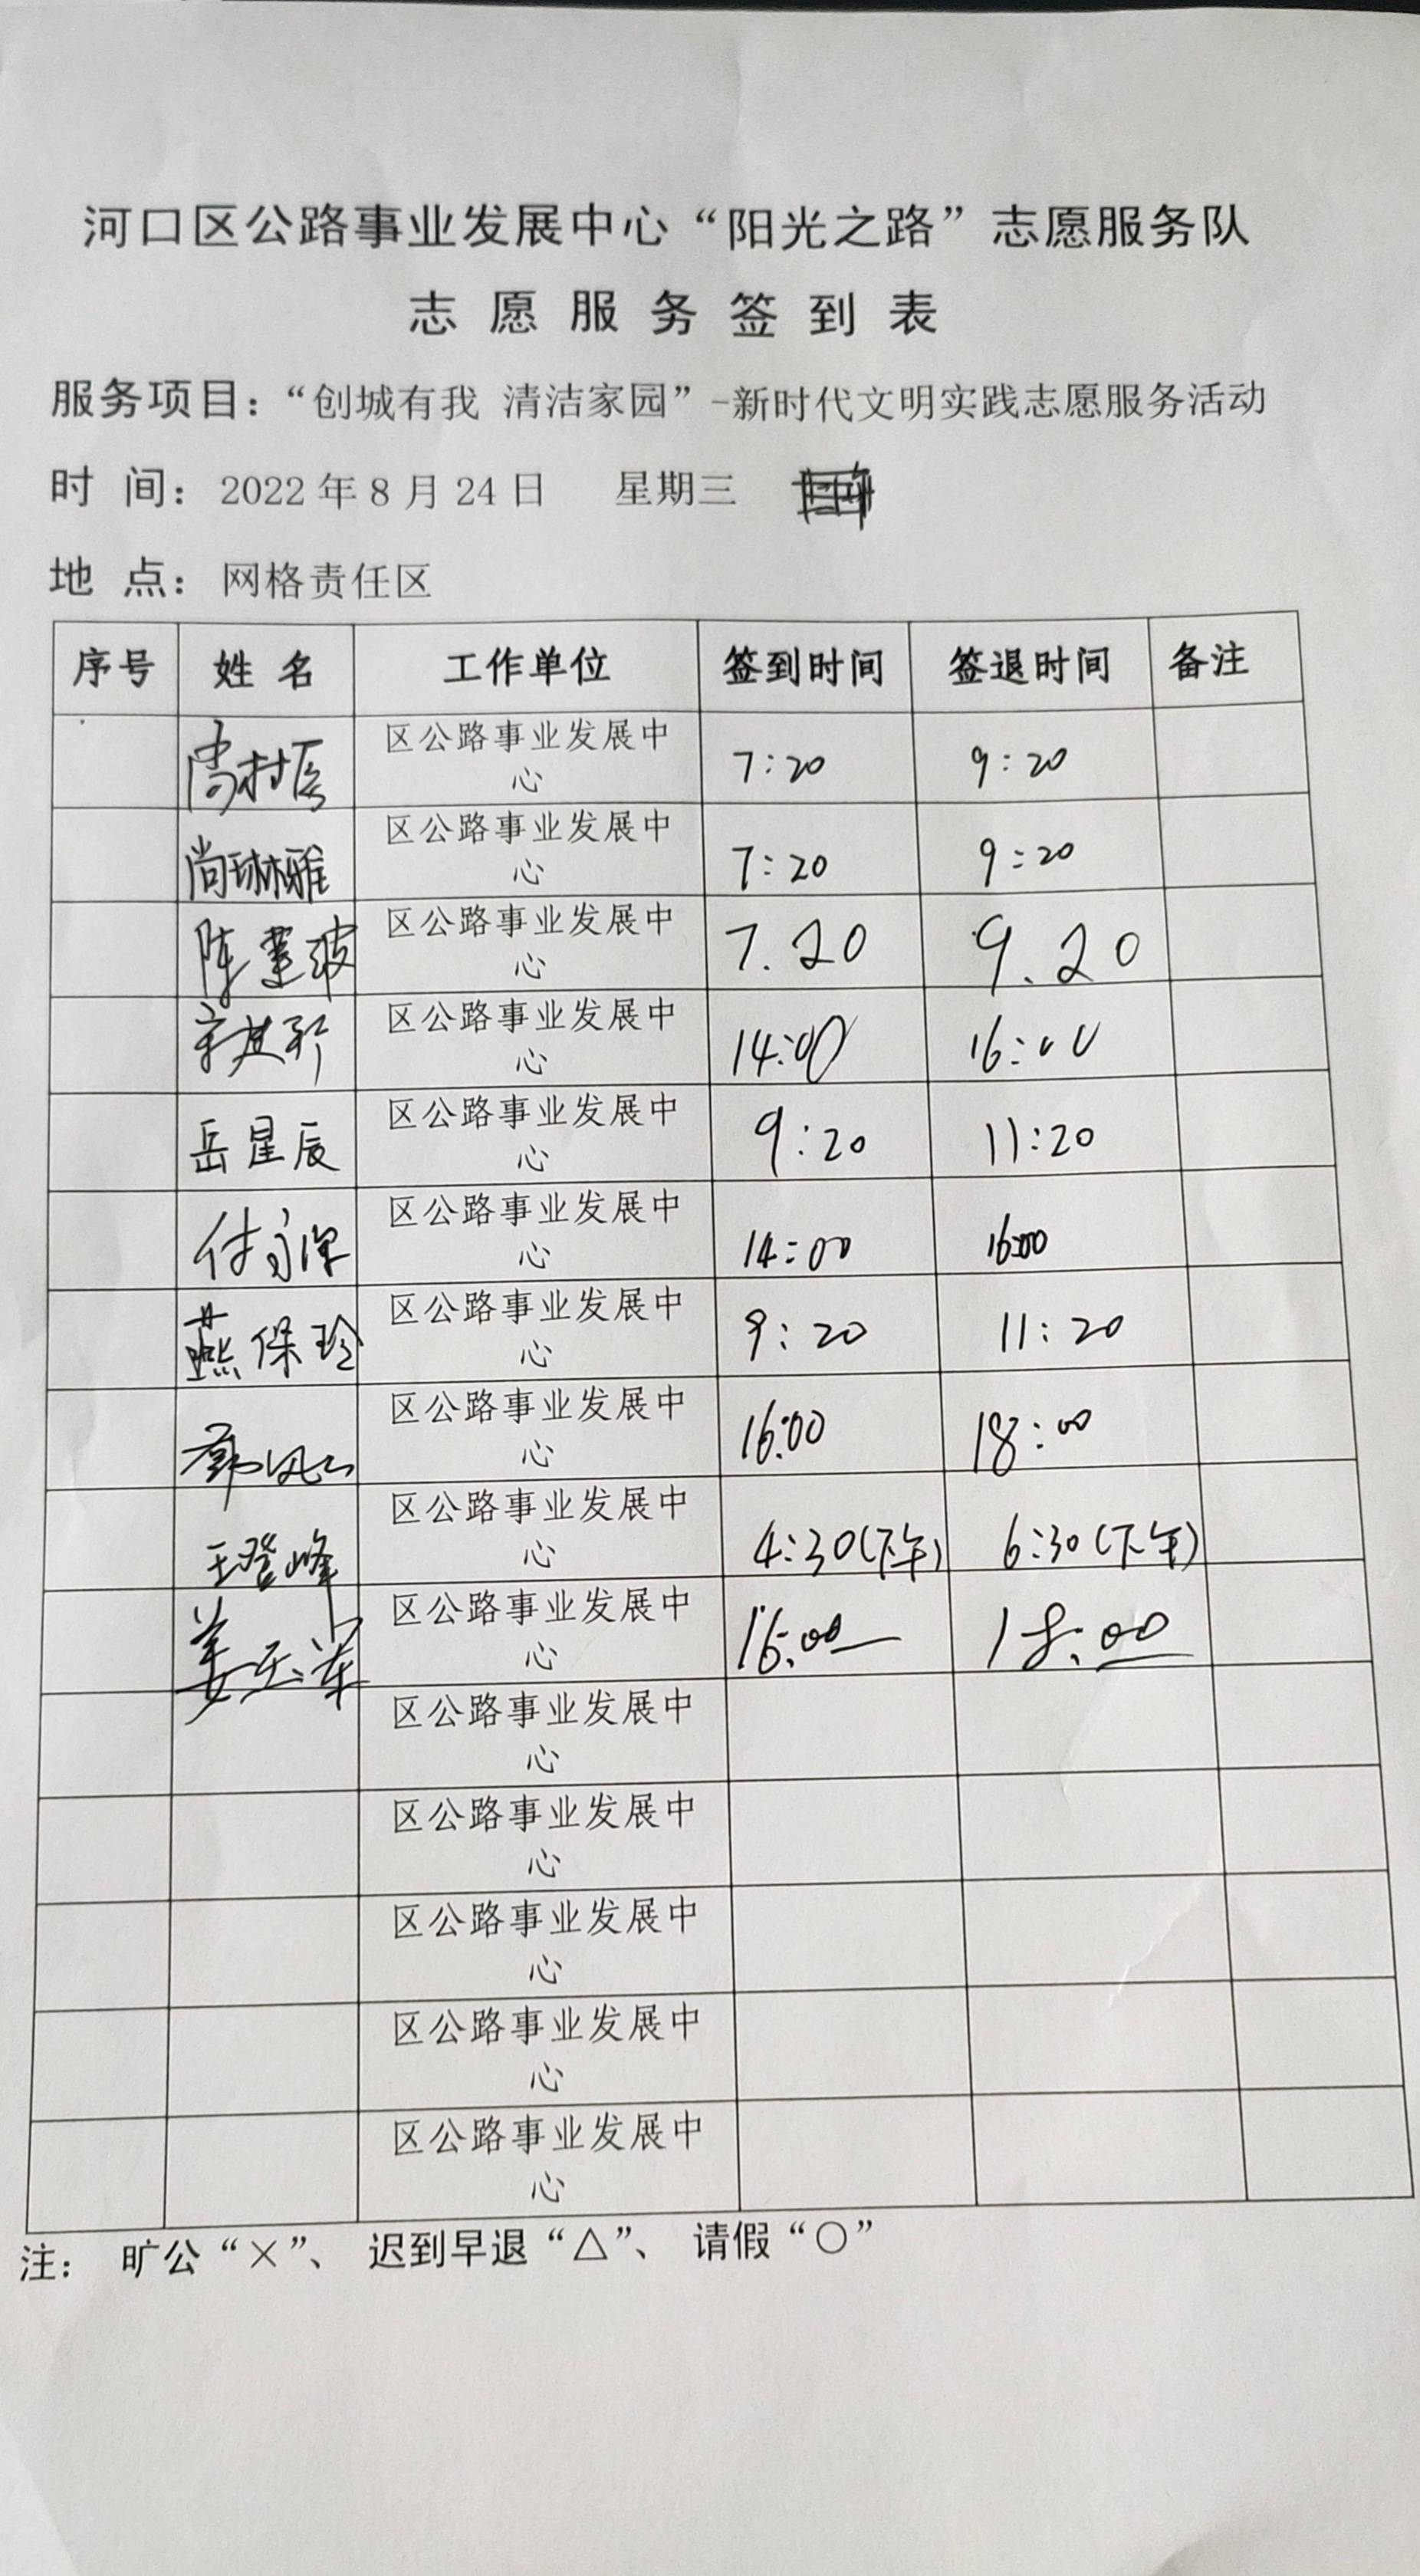 河口区公路事业发展中心“阳光之路”志愿服务队
志愿服务签到表
服务项目：“创城有我 清洁家园”-新时代文明实践志愿服务活动
时 间：2022年8月24日 星期三
地 点：网格责任区
序号 姓名 工作单位 签到时间 签退时间 备注
区公路事业发展中
心 7:20 9:20
区公路事业发展中
尚琳雅 心 7:20 9:20
区公路事业发展中
心 7.20 9.20
区公路事业发展中
心 14:00 16:00
区公路事业发展中
岳星辰 心 9:20 11:20
区公路事业发展中
心 14:00 16:00
区公路事业发展中
燕保玲 心 9:20 11:20
区公路事业发展中
心 16:00 18:00
区公路事业发展中
王登峰 心 4:30(下午) 6:30(下午)
区公路事业发展中
心 16:00 18:00
区公路事业发展中
心
区公路事业发展中
心
区公路事业发展中
心
区公路事业发展中
心
区公路事业发展中
心
注： 旷公“×”、 迟到早退“△”、 请假“○”